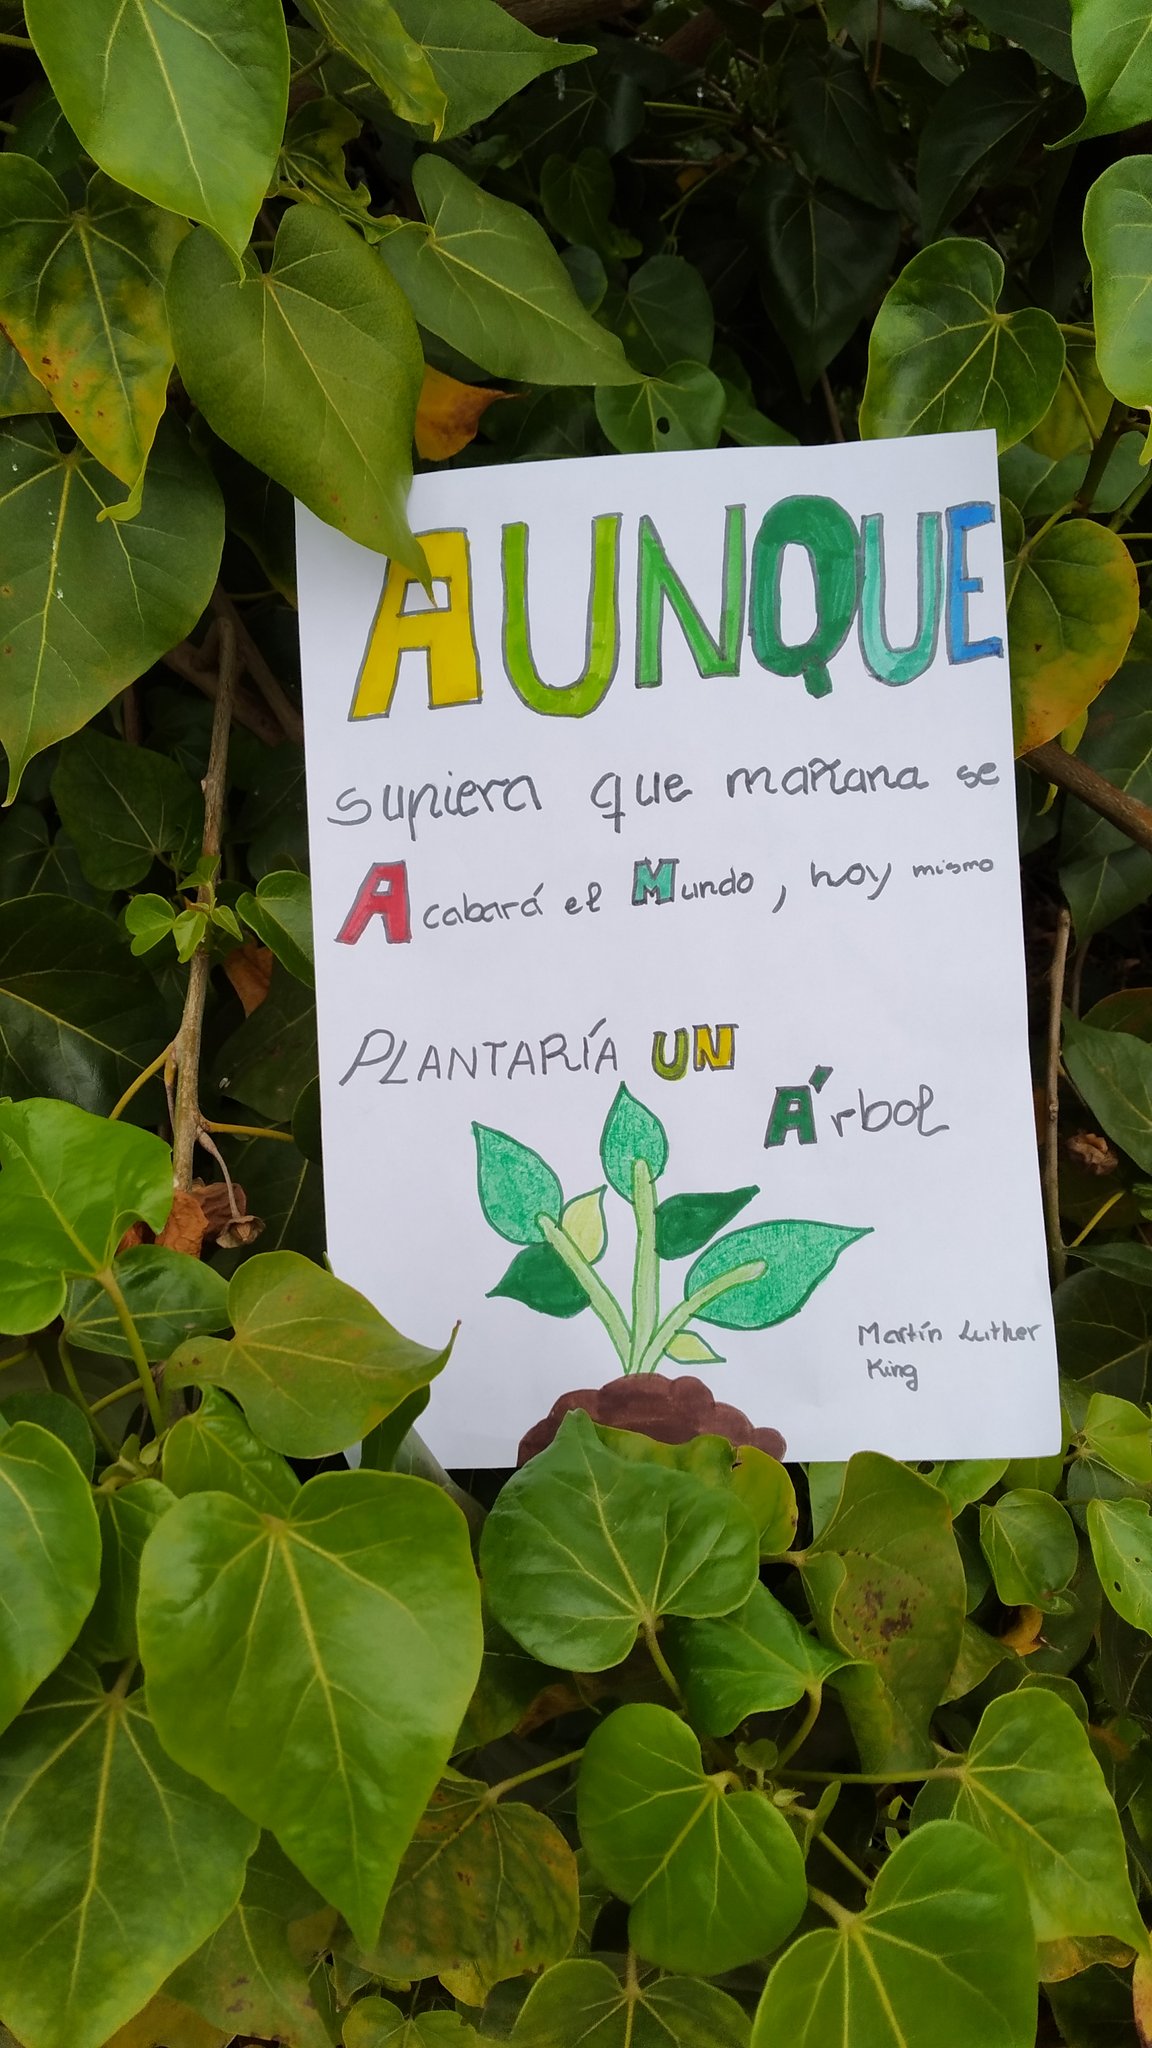 AUNQUE
supiera que mañana se
Acabará el Mundo, hoy mismo
PLANTARÍA UN
Árbol
Martín Luther
King